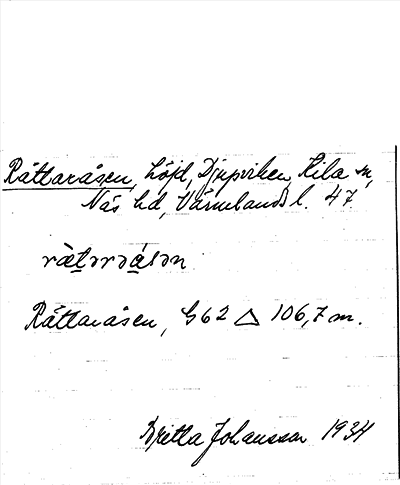 Råttaråsen, höjd, Djupviken, Kila sn,
Näs hd, Värmlands l. 47
Råttaråsen, G62 △ 106,7 m.
Britta Johansson 1934